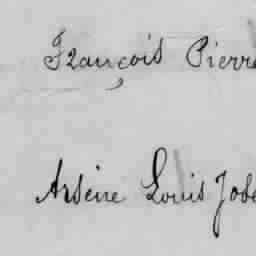 François Pierre
Arsène Louis Jobe